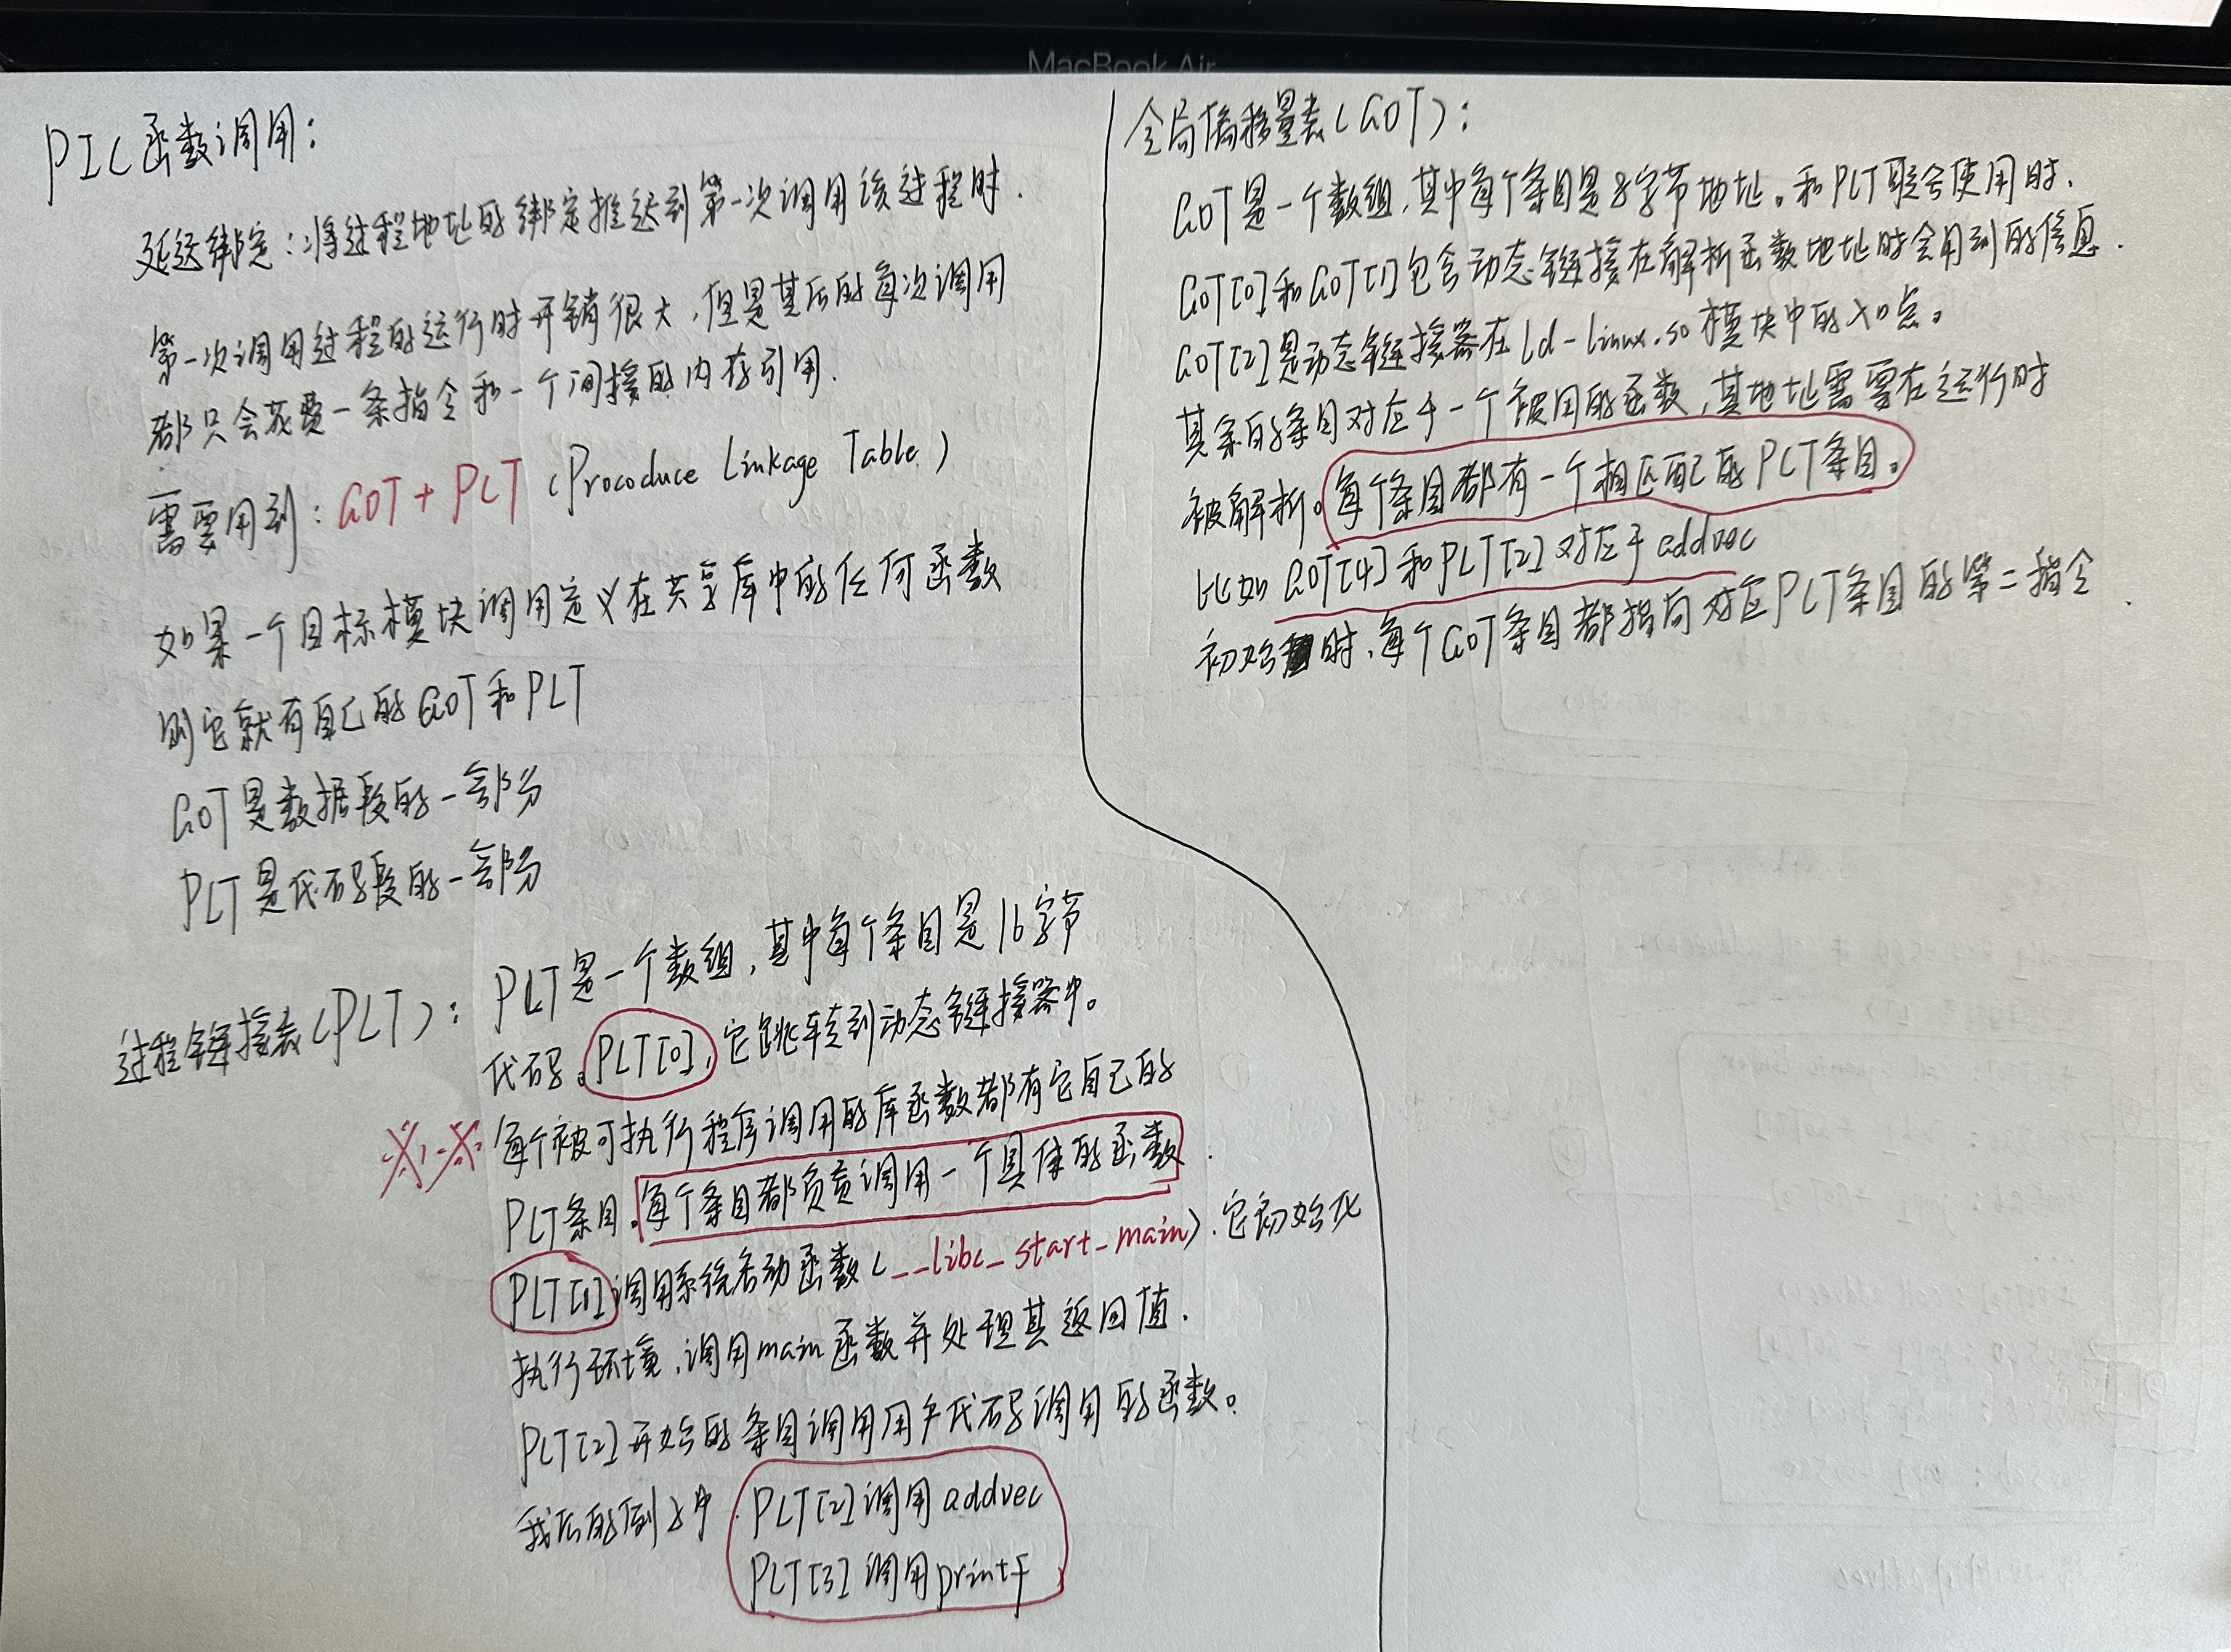 MacBook Air
PIC函数调用：
延迟绑定：将过程地址的绑定推迟到第一次调用该过程时.
第一次调用过程的运行时开销很大，但是其后的每次调用
都只会花费一条指令和一个间接的内存引用.
需要用到：GOT + PLT (Procoduce Linkage Table)
如果一个目标模块调用定义在共享库中的任何函数
则它就有自己的GOT和PLT
GOT是数据段的一部分
PLT是代码段的一部分
过程链接表(PLT)：PLT是一个数组，其中每个条目是16字节
代码。PLT[0]，它跳转到动态链接器中。
每个被可执行程序调用的库函数都有它自己的
PLT条目。每个条目都负责调用一个具体的函数.
PLT[1]调用系统启动函数(__libc_start_main).它初始化
执行环境，调用main函数并处理其返回值.
PLT[2]开始的条目调用用户代码调用的函数。
我后的例子中 PLT[2]调用addvec
PLT[3]调用printf
全局偏移量表(GOT)：
GOT是一个数组，其中每个条目是8字节地址。和PLT联合使用时.
GOT[0]和GOT[1]包含动态链接在解析函数地址时会用到的信息.
GOT[2]是动态链接器在ld-linux.so模块中的入口点。
其余的条目对应于一个被用的函数，其地址需要在运行时
被解析。每个条目都有一个相匹配的PLT条目。
比如GOT[4]和PLT[2]对应于addvec
初始时，每个GOT条目都指向对应PLT条目的第二指令.